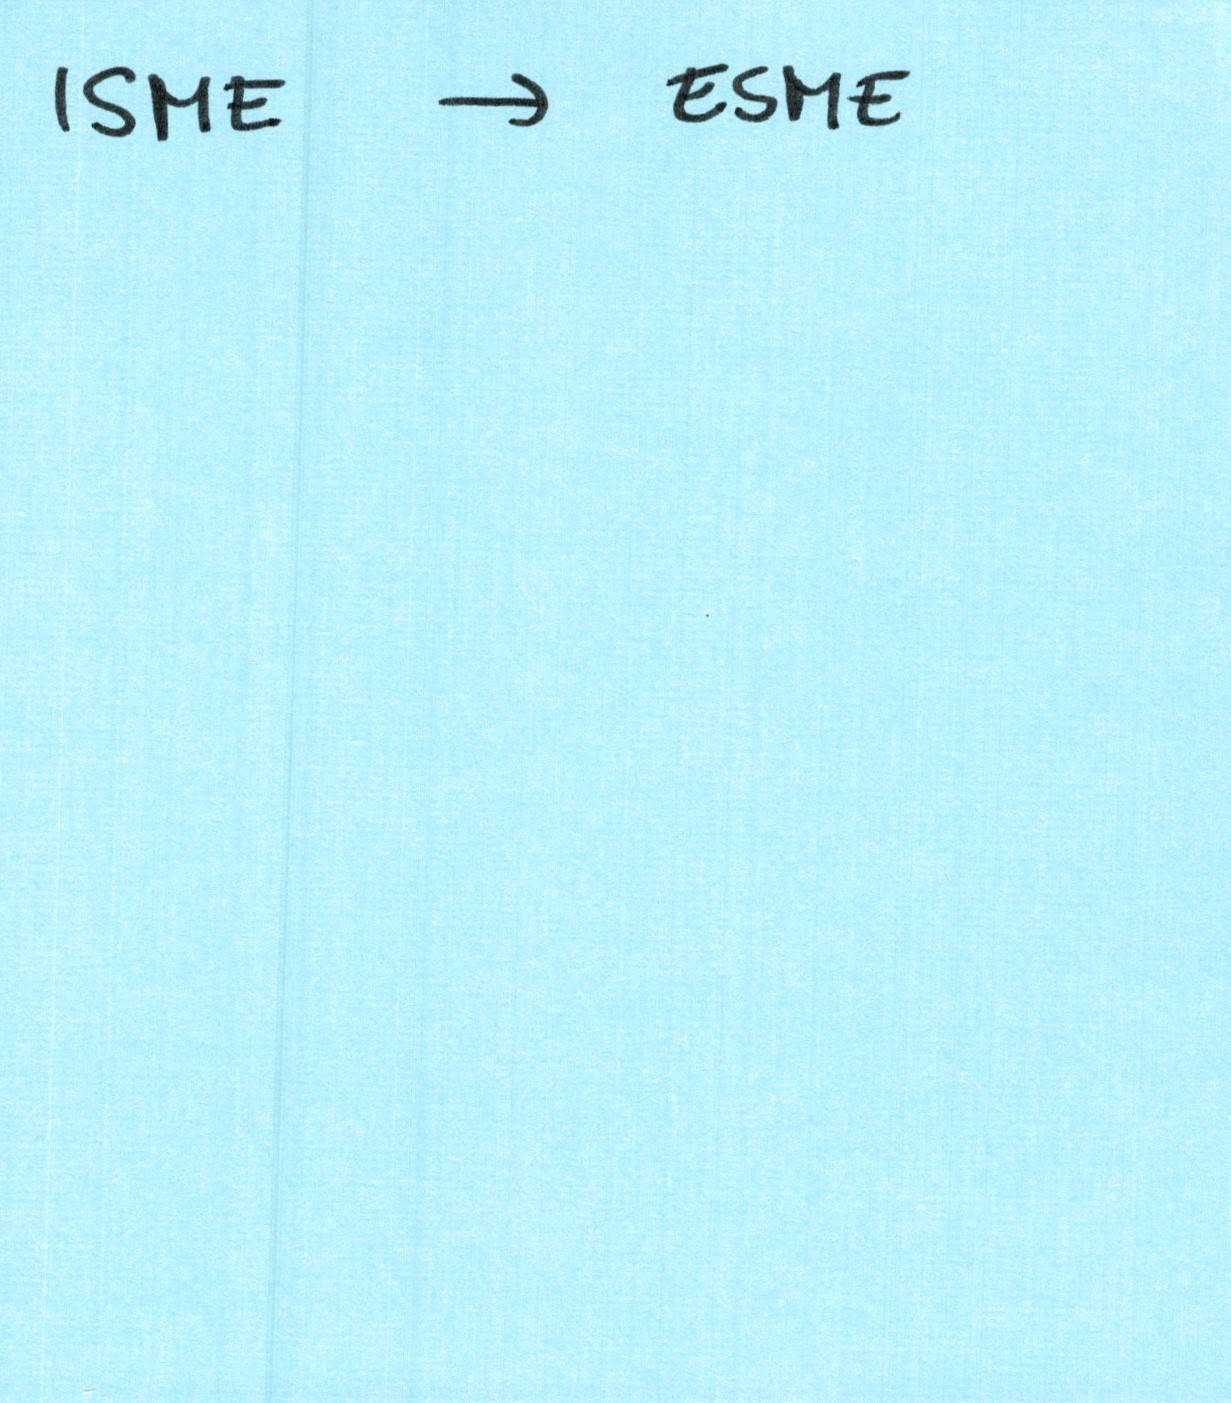 ISME → ESME